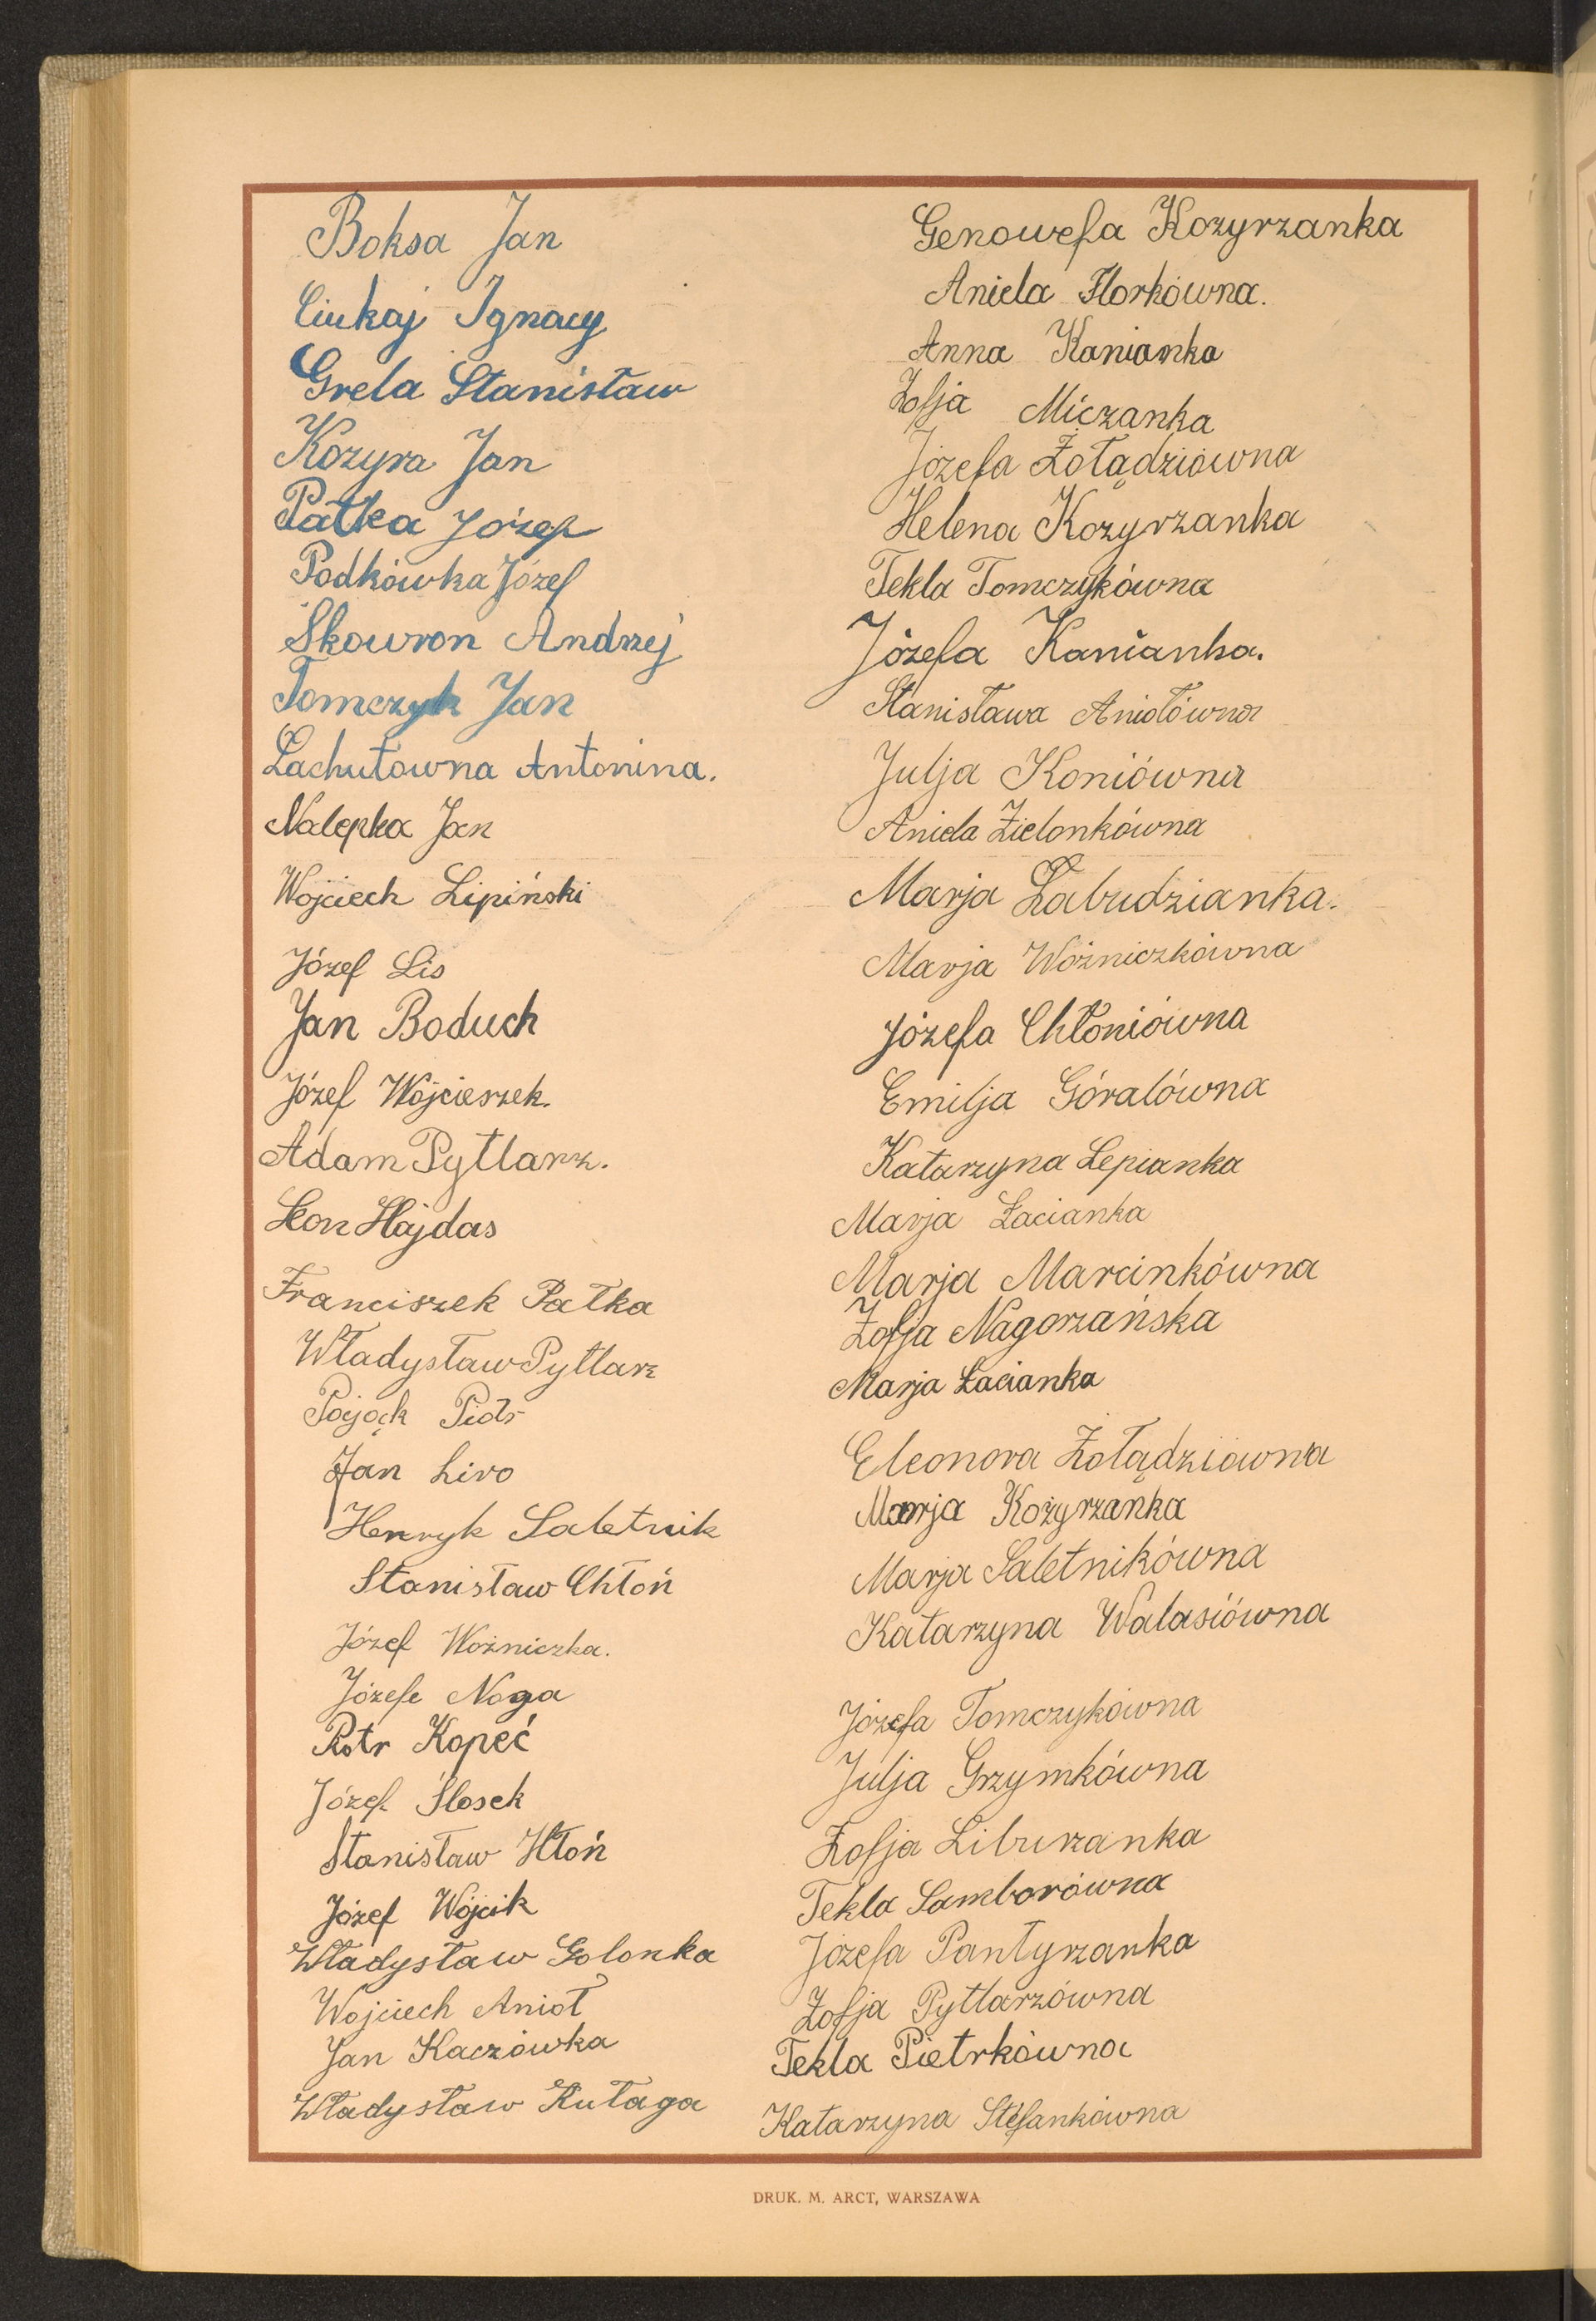 Boksa Jan
Ciukaj Ignacy
Grela Stanisław
Kozyra Jan
Pałka Józef
Podkówka Józef
Skowron Andrzej
Tomczyk Jan
Łachutówna Antonina.
Nalepka Jan
Wojciech Lipiński
Józef Lis
Jan Boduch
Józef Wojcieszek.
Adam Pytlarz.
Leon Hajdas
Franciszek Pałka
Władysław Pytlarz
Pająck Piotr
Jan Liro
Henryk Saletnik
Stanisław Chłoń
Józef Woźniczka.
Józefe Noga
Piotr Kopeć
Józef Ślosek
Stanisław Hłoń
Józef Wójcik
Władysław Golonka
Wojciech Anioł
Jan Kaczówka
Władysław Kułaga
Genowefa Kozyrzanka
Aniela Florkówna.
Anna Kanianka
Zofja Miczanka
Józefa Żołądziówna
Helena Kozyrzanka
Tekla Tomczykówna
Józefa Kanianka.
Stanisława Aniołówna
Julja Koniówna
Aniela Zielonkówna
Marja Łabudzianka.
Marja Woźniczkówna
Józefa Chłoniówna
Emilja Góralówna
Katarzyna Lepianka
Marja Łacianka
Marja Marcinkówna
Zofja Nagorzańska
Marja Łacianka
Eleonora Żołądziówna
Marja Kozyrzanka
Marja Saletnikówna
Katarzyna Walasiówna
Józefa Tomczykówna
Julja Grzymkówna
Zofja Liburzanka
Tekla Samborówna
Józefa Pantyrzanka
Zofja Pytlarzówna
Tekla Pietrkówna
Katarzyna Stefankówna
DRUK. M. ARCT, WARSZAWA